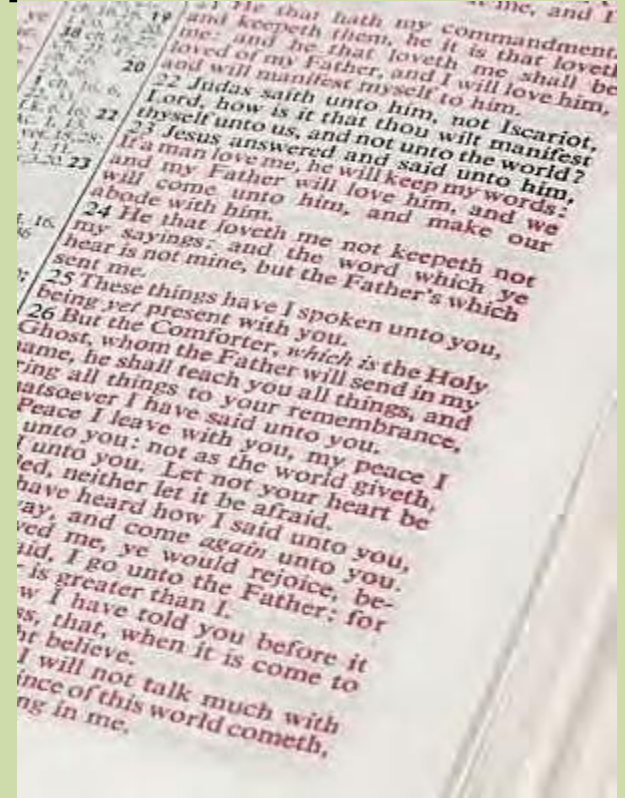 me, and I
He that hath my commandment
and keepeth them, he it is that loveth
me: and he that loveth me shall be
loved of my Father, and I will love him,
and will manifest myself to him.
22 Judas saith unto him, not Iscariot,
Lord, how is it that thou wilt manifest
thyself unto us, and not unto the world?
23 Jesus answered and said unto him,
If a man love me, he will keep my words:
and my Father will love him, and we
will come unto him, and make our
abode with him.
24 He that loveth me not keepeth not
my sayings: and the word which ye
hear is not mine, but the Father's which
sent me.
25 These things have I spoken unto you,
being yet present with you.
26 But the Comforter, which is the Holy
Ghost, whom the Father will send in my
ame, he shall teach you all things, and
ring all things to your remembrance,
atsoever I have said unto you.
Peace I leave with you, my peace I
unto you: not as the world giveth,
I unto you. Let not your heart be
led, neither let it be afraid.
have heard how I said unto you,
ay, and come again unto you.
ved me, ye would rejoice, be-
aid, I go unto the Father: for
is greater than I.
w I have told you before it
ss, that, when it is come to
ht believe.
I will not talk much with
ince of this world cometh,
ng in me.
19
20
22
23